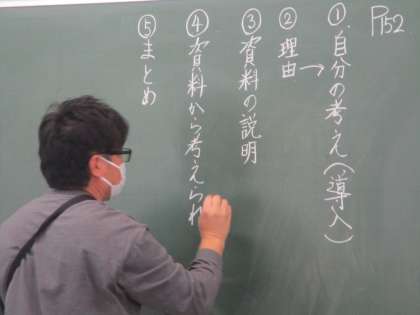 P152
① 自分の考え(導入)
② 理由→
③ 資料の説明
④ 資料から考えられ
⑤ まとめ